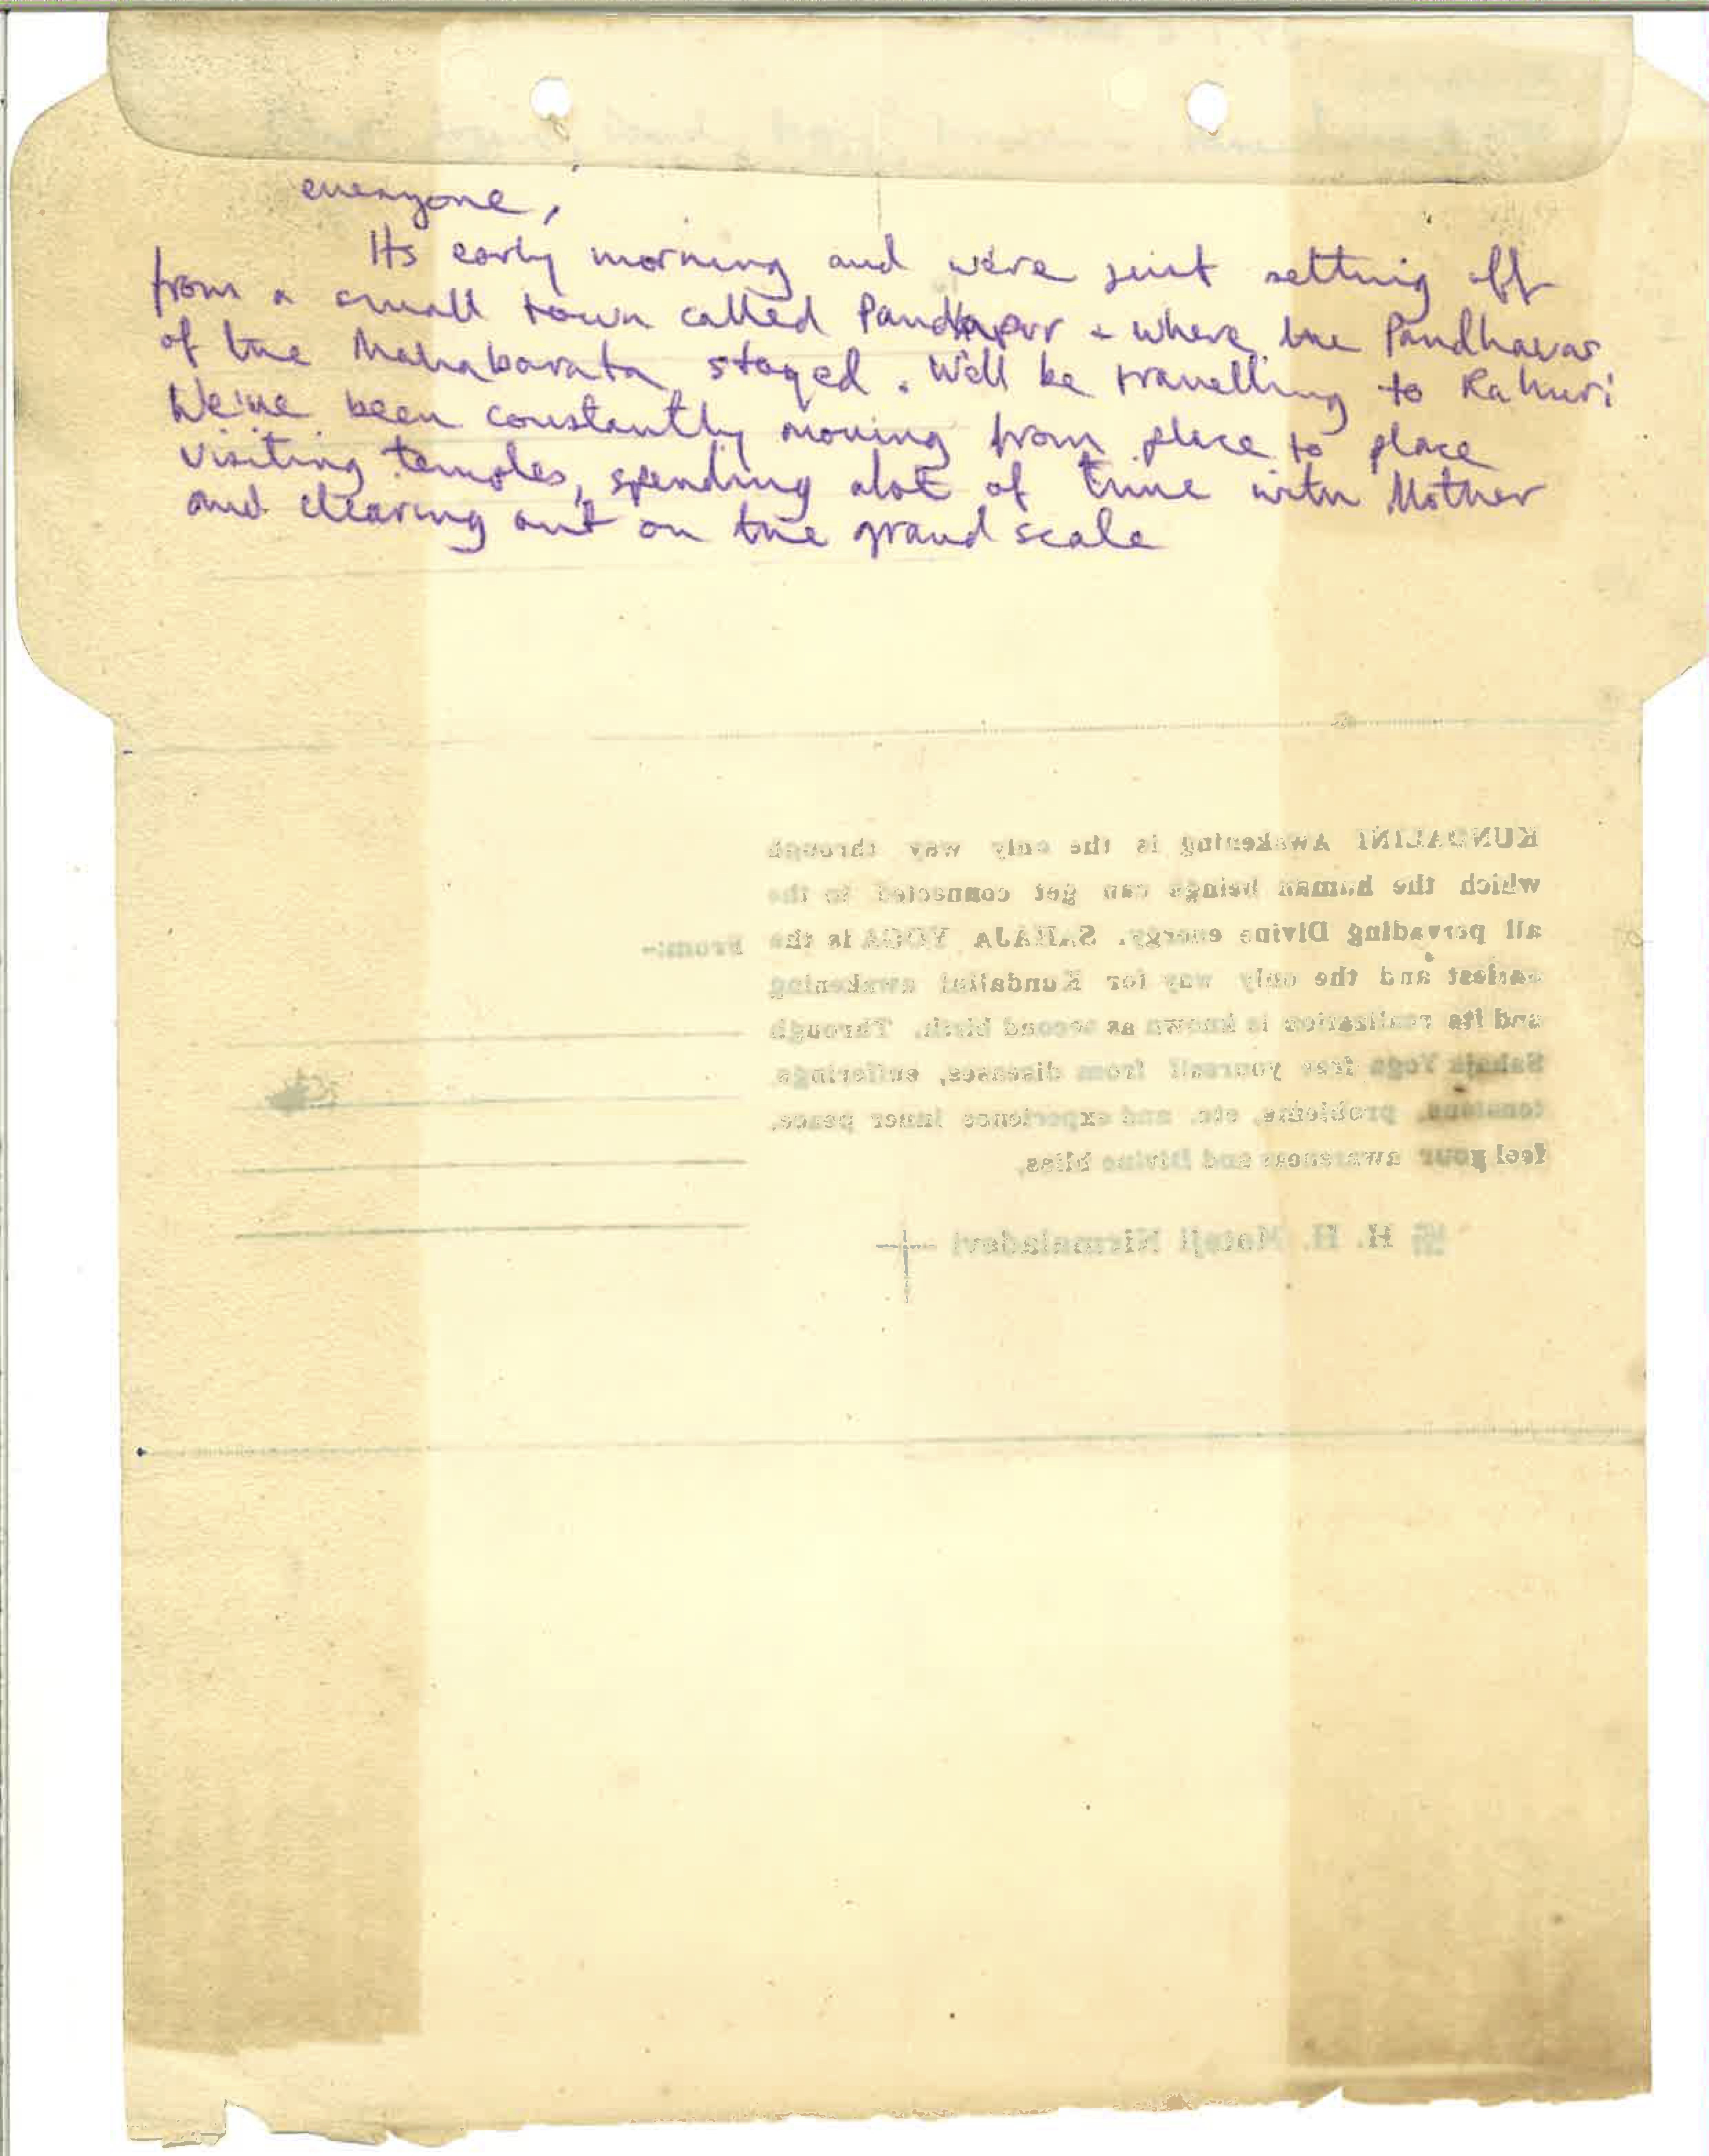 everyone,
Its early morning and we're just setting off
from a small town called Pandhapur - where the Pandhavas
of the Mahabarata stayed. We'll be travelling to Rahuri
We've been constantly moving from place to place
visiting temples, spending alot of time with Mother
and clearing out on the grand scale
KUNDALINI Awakening is the only way through
which the human beings can get connected to the
all pervading Divine energy. SAHAJA YOGA is the
easiest and the only way for Kundalini awakening
and its realization is known as second birth. Through
Sahaja Yoga free yourself from diseases, sufferings
tensions, problems, etc. and experience inner peace,
feel your awareness and Divine bliss.
卐 H. H. Mataji Nirmaladevi
From:-